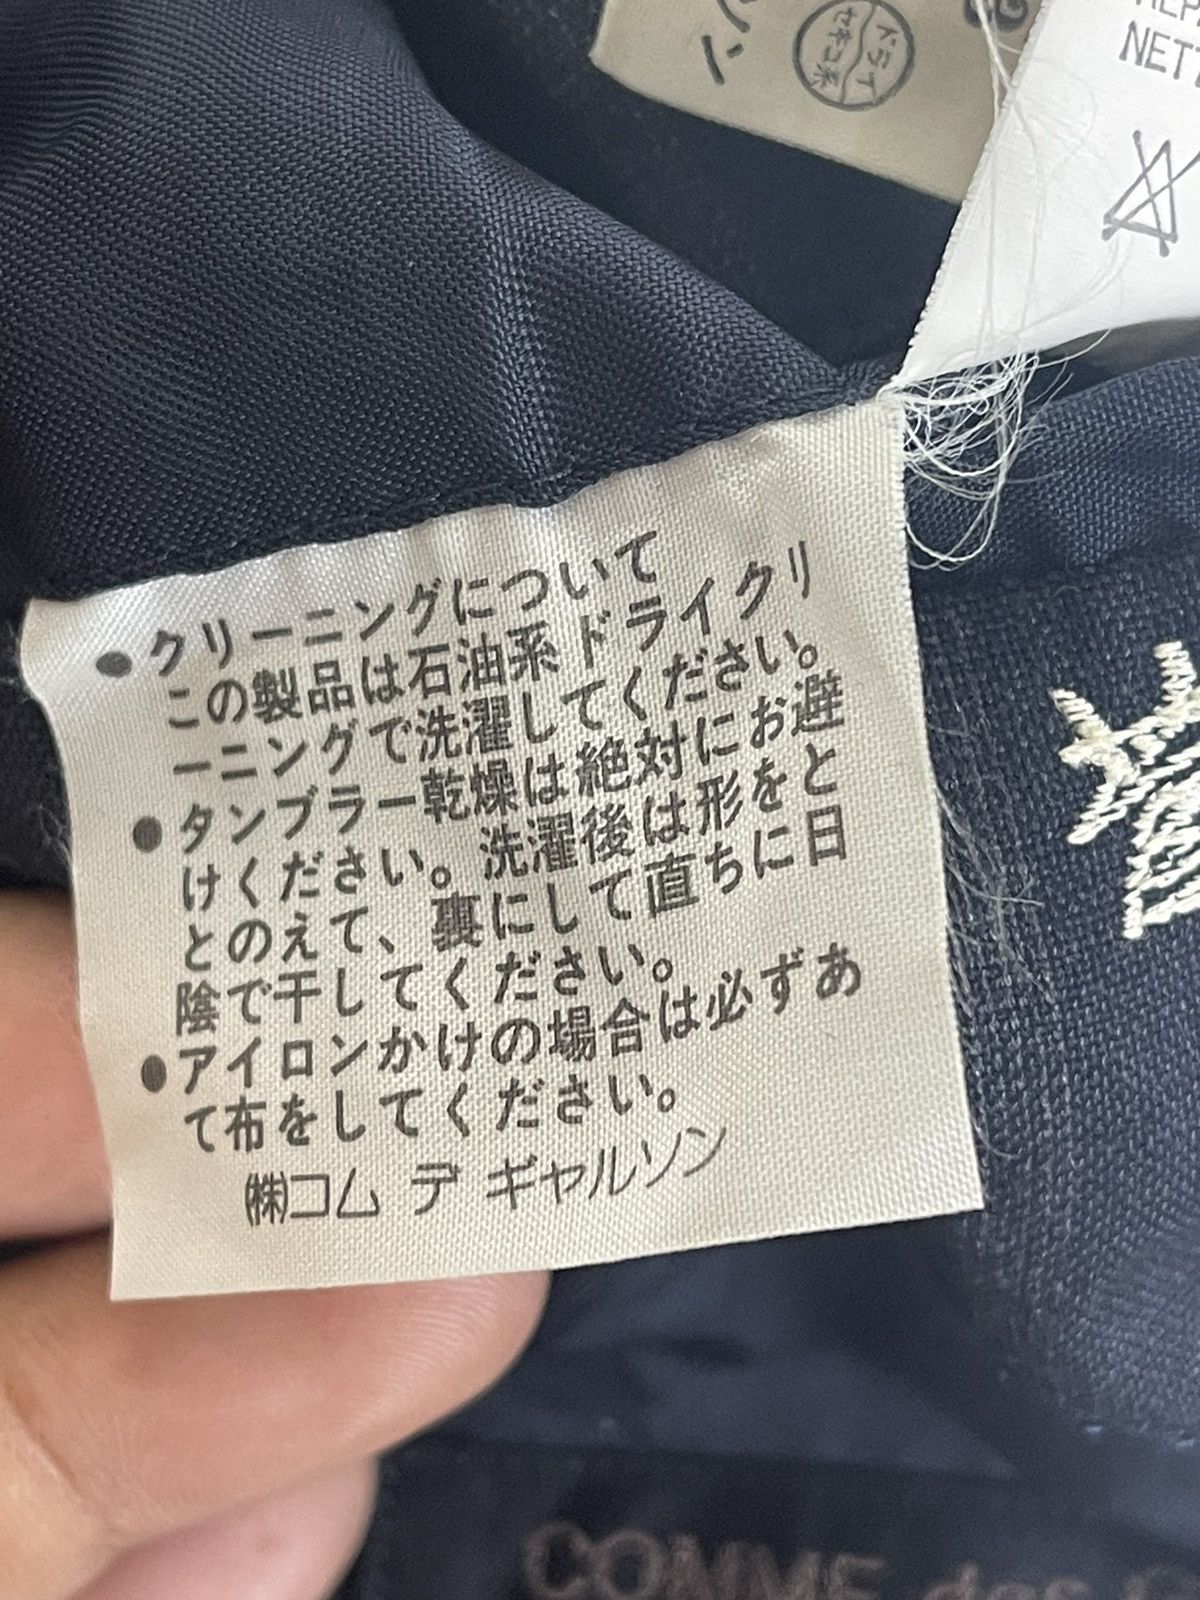 ン
ドライ
セキユ系
NETT
●クリーニングについて
この製品は石油系ドライクリ
ーニングで洗濯してください。
●タンブラー乾燥は絶対にお避
けください。洗濯後は形をと
とのえて、裏にして直ちに日
陰で干してください。
●アイロンかけの場合は必ずあ
て布をしてください。
㈱コム デ ギャルソン
COMME des